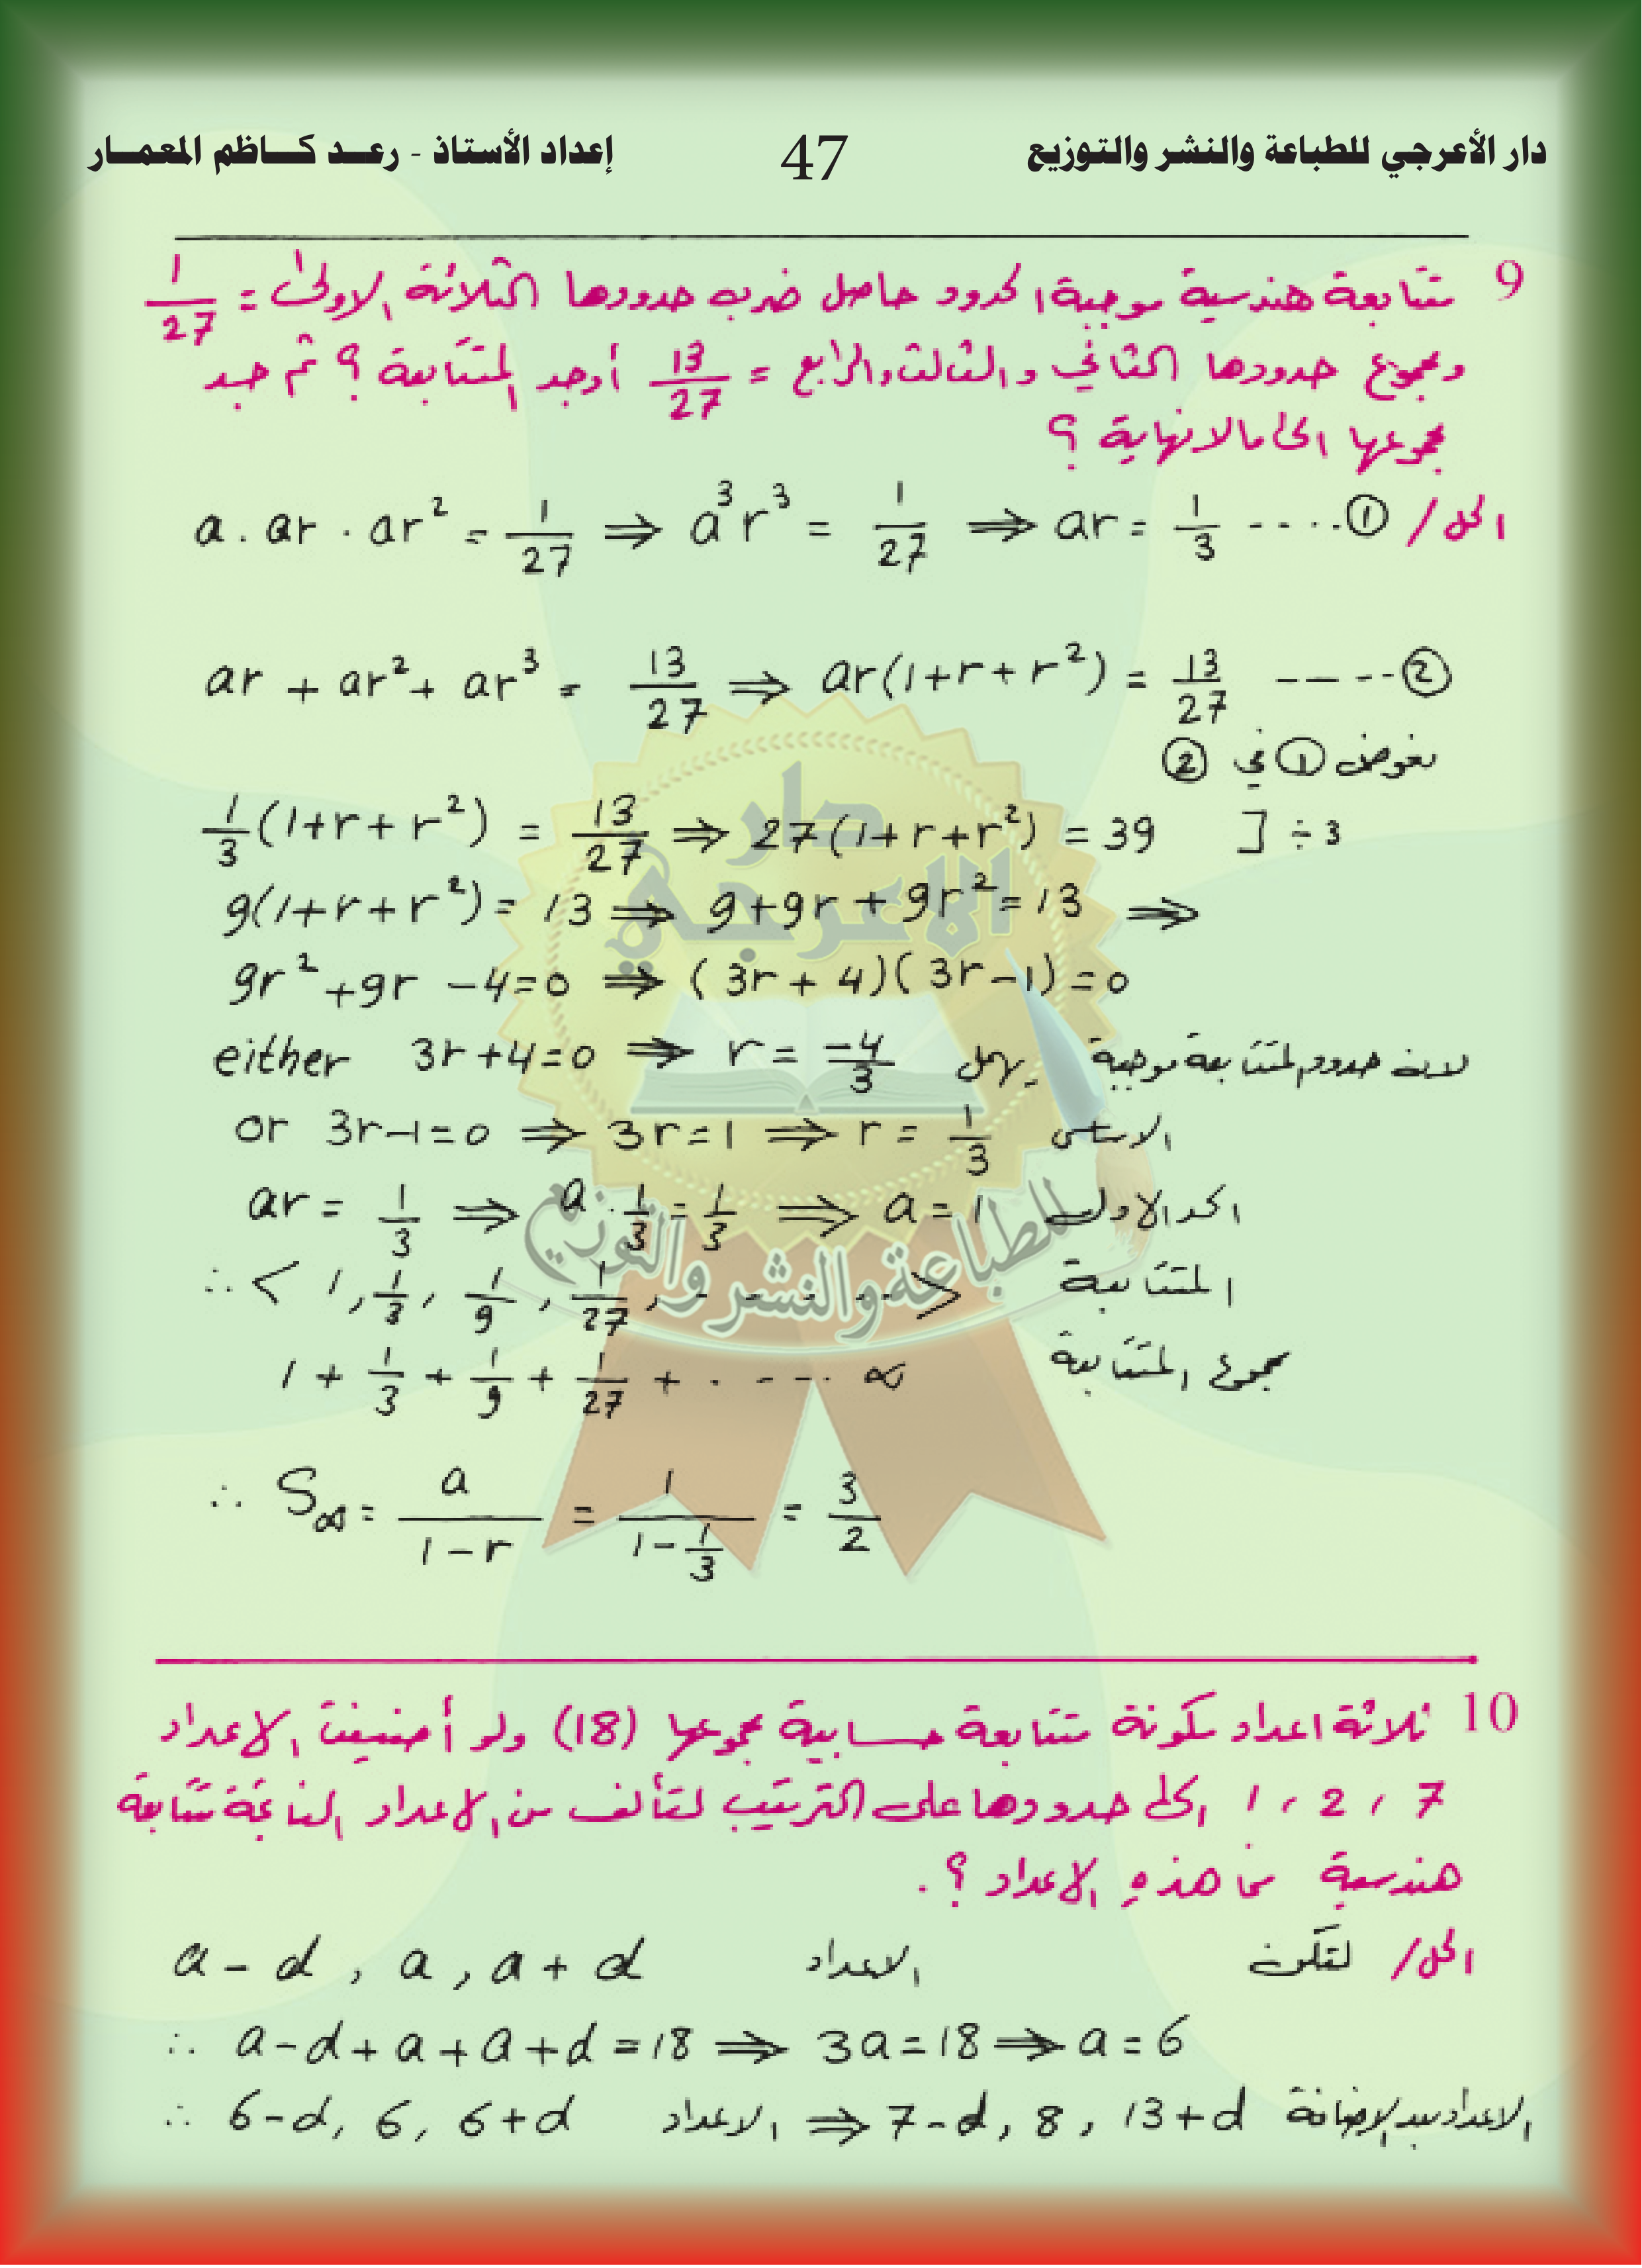 دار الأعرجي للطباعة والنشر والتوزيع 47 إعداد الأستاذ - رعد كاظم المعمار
9 متتابعة هندسية موجبة الحدود حاصل ضرب حدودها الثلاثة الاولى = 1/27
ومجموع حدودها الثاني والثالث والرابع = 13/27 أوجد المتتابعة ؟ ثم جد
مجموعها الى مالانهاية ؟
الحل / a . ar . ar² = 1/27 ⇒ a³r³ = 1/27 ⇒ ar = 1/3 ----- ①
ar + ar² + ar³ = 13/27 ⇒ ar(1+r+r²) = 13/27 ----- ②
نعوض ① في ②
1/3(1+r+r²) = 13/27 ⇒ 27(1+r+r²) = 39 ] ÷ 3
9(1+r+r²) = 13 ⇒ 9+9r+9r² = 13 ⇒
9r²+9r-4=0 ⇒ (3r+4)(3r-1)=0
either 3r+4=0 ⇒ r = -4/3 يهمل لان حدود المتتابعة موجبة
or 3r-1=0 ⇒ 3r=1 ⇒ r = 1/3 الاساس
ar = 1/3 ⇒ a . 1/3 = 1/3 ⇒ a = 1 الحد الاول
∴ < 1, 1/3, 1/9, 1/27, ------ > المتتابعة
1 + 1/3 + 1/9 + 1/27 + ----- ∞ مجموع المتتابعة
∴ S∞ = a/(1-r) = 1/(1-1/3) = 3/2
10 ثلاثة اعداد مكونة متتابعة حسابية مجموعها (18) ولو أضيفت الاعداد
7 ، 2 ، 1 الى حدودها على الترتيب لتألف من الاعداد الناتجة متتابعة
هندسية ما هذه الاعداد ؟ .
الحل / لتكن الاعداد a - d , a , a + d
∴ a-d+a+a+d=18 ⇒ 3a=18 ⇒ a=6
∴ 6-d, 6, 6+d الاعداد ⇒ 7-d, 8, 13+d الاعداد بعد الاضافة
دار
الاعرجي
للطباعة والنشر والتوزيع